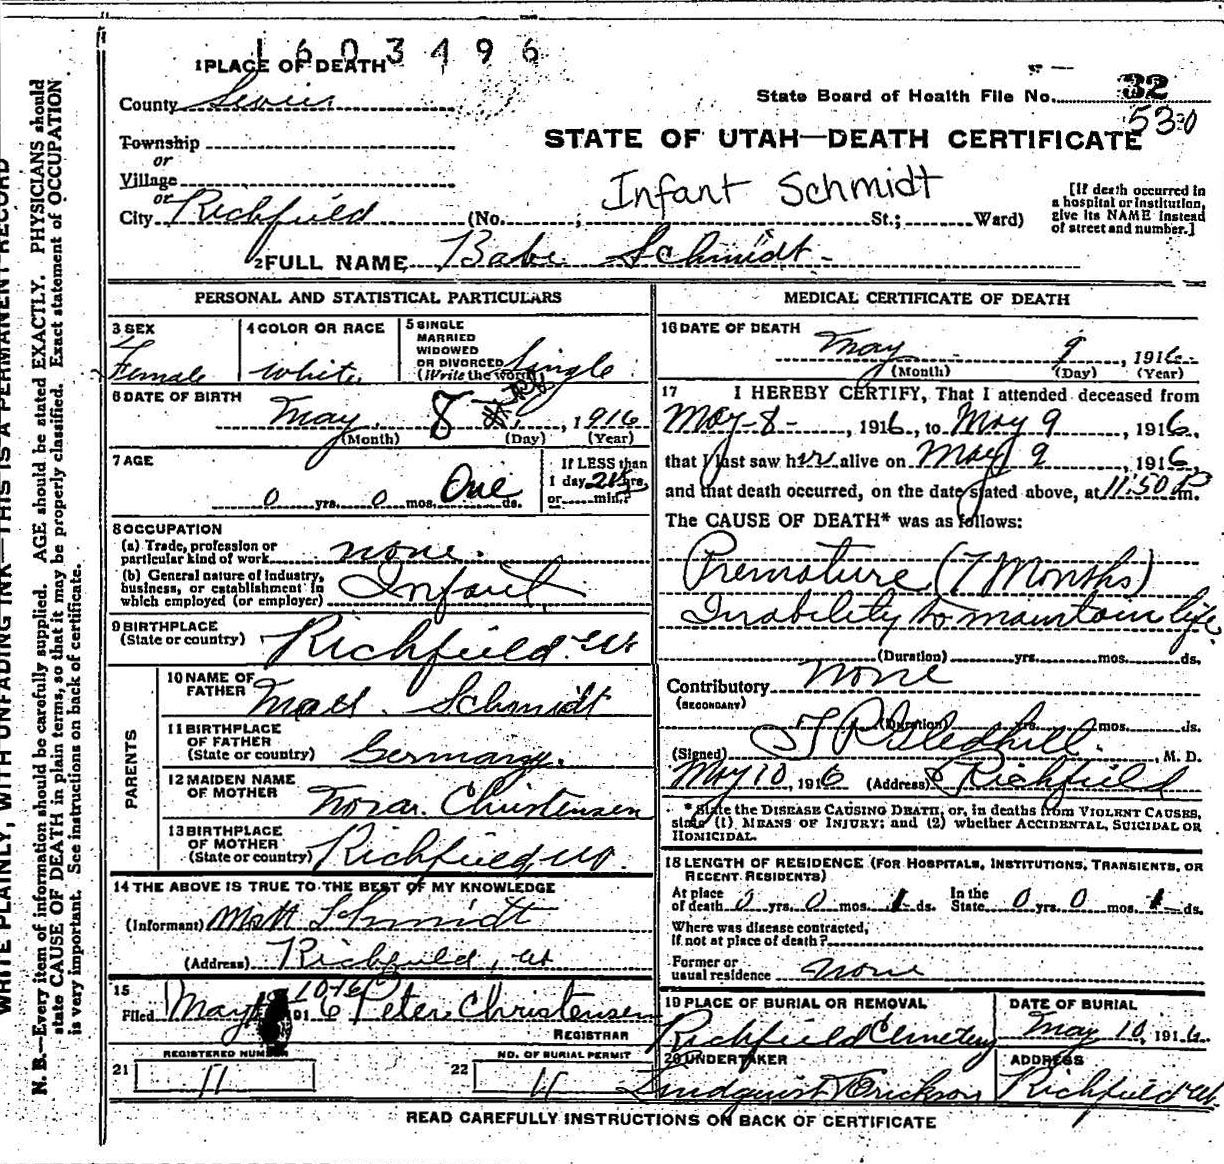 1603496
1 PLACE OF DEATH
County Sevier
State Board of Health File No. 32
530
Township
or
Village
or
City Richfield (No. ; St.; Ward)
STATE OF UTAH—DEATH CERTIFICATE
Infant Schmidt
[If death occurred in
a hospital or institution,
give its NAME instead
of street and number.]
2 FULL NAME Babe Schmidt
PERSONAL AND STATISTICAL PARTICULARS
3 SEX
Female
4 COLOR OR RACE
White
5 SINGLE
MARRIED
WIDOWED
OR DIVORCED
(Write the word)
Single
6 DATE OF BIRTH
May 8, 1916
(Month) (Day) (Year)
7 AGE
0 yrs. 0 mos. One ds.
If LESS than
1 day hrs.
or min.?
8 OCCUPATION
(a) Trade, profession or
particular kind of work none.
(b) General nature of industry,
business, or establishment in
which employed (or employer) Infant
9 BIRTHPLACE
(State or country) Richfield Ut
PARENTS
10 NAME OF
FATHER Matt Schmidt
11 BIRTHPLACE
OF FATHER
(State or country) Germany.
12 MAIDEN NAME
OF MOTHER Christensen
13 BIRTHPLACE
OF MOTHER
(State or country) Richfield Ut.
14 THE ABOVE IS TRUE TO THE BEST OF MY KNOWLEDGE
(Informant) Matt Schmidt
(Address) Richfield, Ut
15
Filed May 10-16 1916 Peter Christensen
REGISTRAR
REGISTERED NUMBER
21 11
NO. OF BURIAL PERMIT
22 11
MEDICAL CERTIFICATE OF DEATH
16 DATE OF DEATH
May 9, 1916
(Month) (Day) (Year)
17 I HEREBY CERTIFY, That I attended deceased from
May-8-, 1916, to May 9, 1916,
that I last saw her alive on May 9, 1916,
and that death occurred, on the date stated above, at 11:50 P m.
The CAUSE OF DEATH* was as follows:
Premature (7 Months)
Inability to maintain life
(Duration) yrs. mos. ds.
Contributory none
(SECONDARY)
(Duration) yrs. mos. ds.
(Signed) T R Gledhill, M. D.
May 10, 1916 (Address) Richfield
*State the DISEASE CAUSING DEATH, or, in deaths from VIOLENT CAUSES,
state (1) MEANS OF INJURY; and (2) whether ACCIDENTAL, SUICIDAL OR
HOMICIDAL.
18 LENGTH OF RESIDENCE (FOR HOSPITALS, INSTITUTIONS, TRANSIENTS, OR
RECENT RESIDENTS)
At place
of death 0 yrs. 0 mos. 1 ds.
In the
State 0 yrs. 0 mos. 1 ds.
Where was disease contracted,
If not at place of death?
Former or
usual residence none
19 PLACE OF BURIAL OR REMOVAL
Richfield Cemetery
DATE OF BURIAL
May 10, 1916.
20 UNDERTAKER
Lindquist Erickson
ADDRESS
Richfield Ut.
READ CAREFULLY INSTRUCTIONS ON BACK OF CERTIFICATE
WRITE PLAINLY, WITH UNFADING INK—THIS IS A PERMANENT RECORD
N. B.—Every item of information should be carefully supplied. AGE should be stated EXACTLY. PHYSICIANS should
state CAUSE OF DEATH in plain terms, so that it may be properly classified. Exact statement of OCCUPATION
is very important. See instructions on back of certificate.